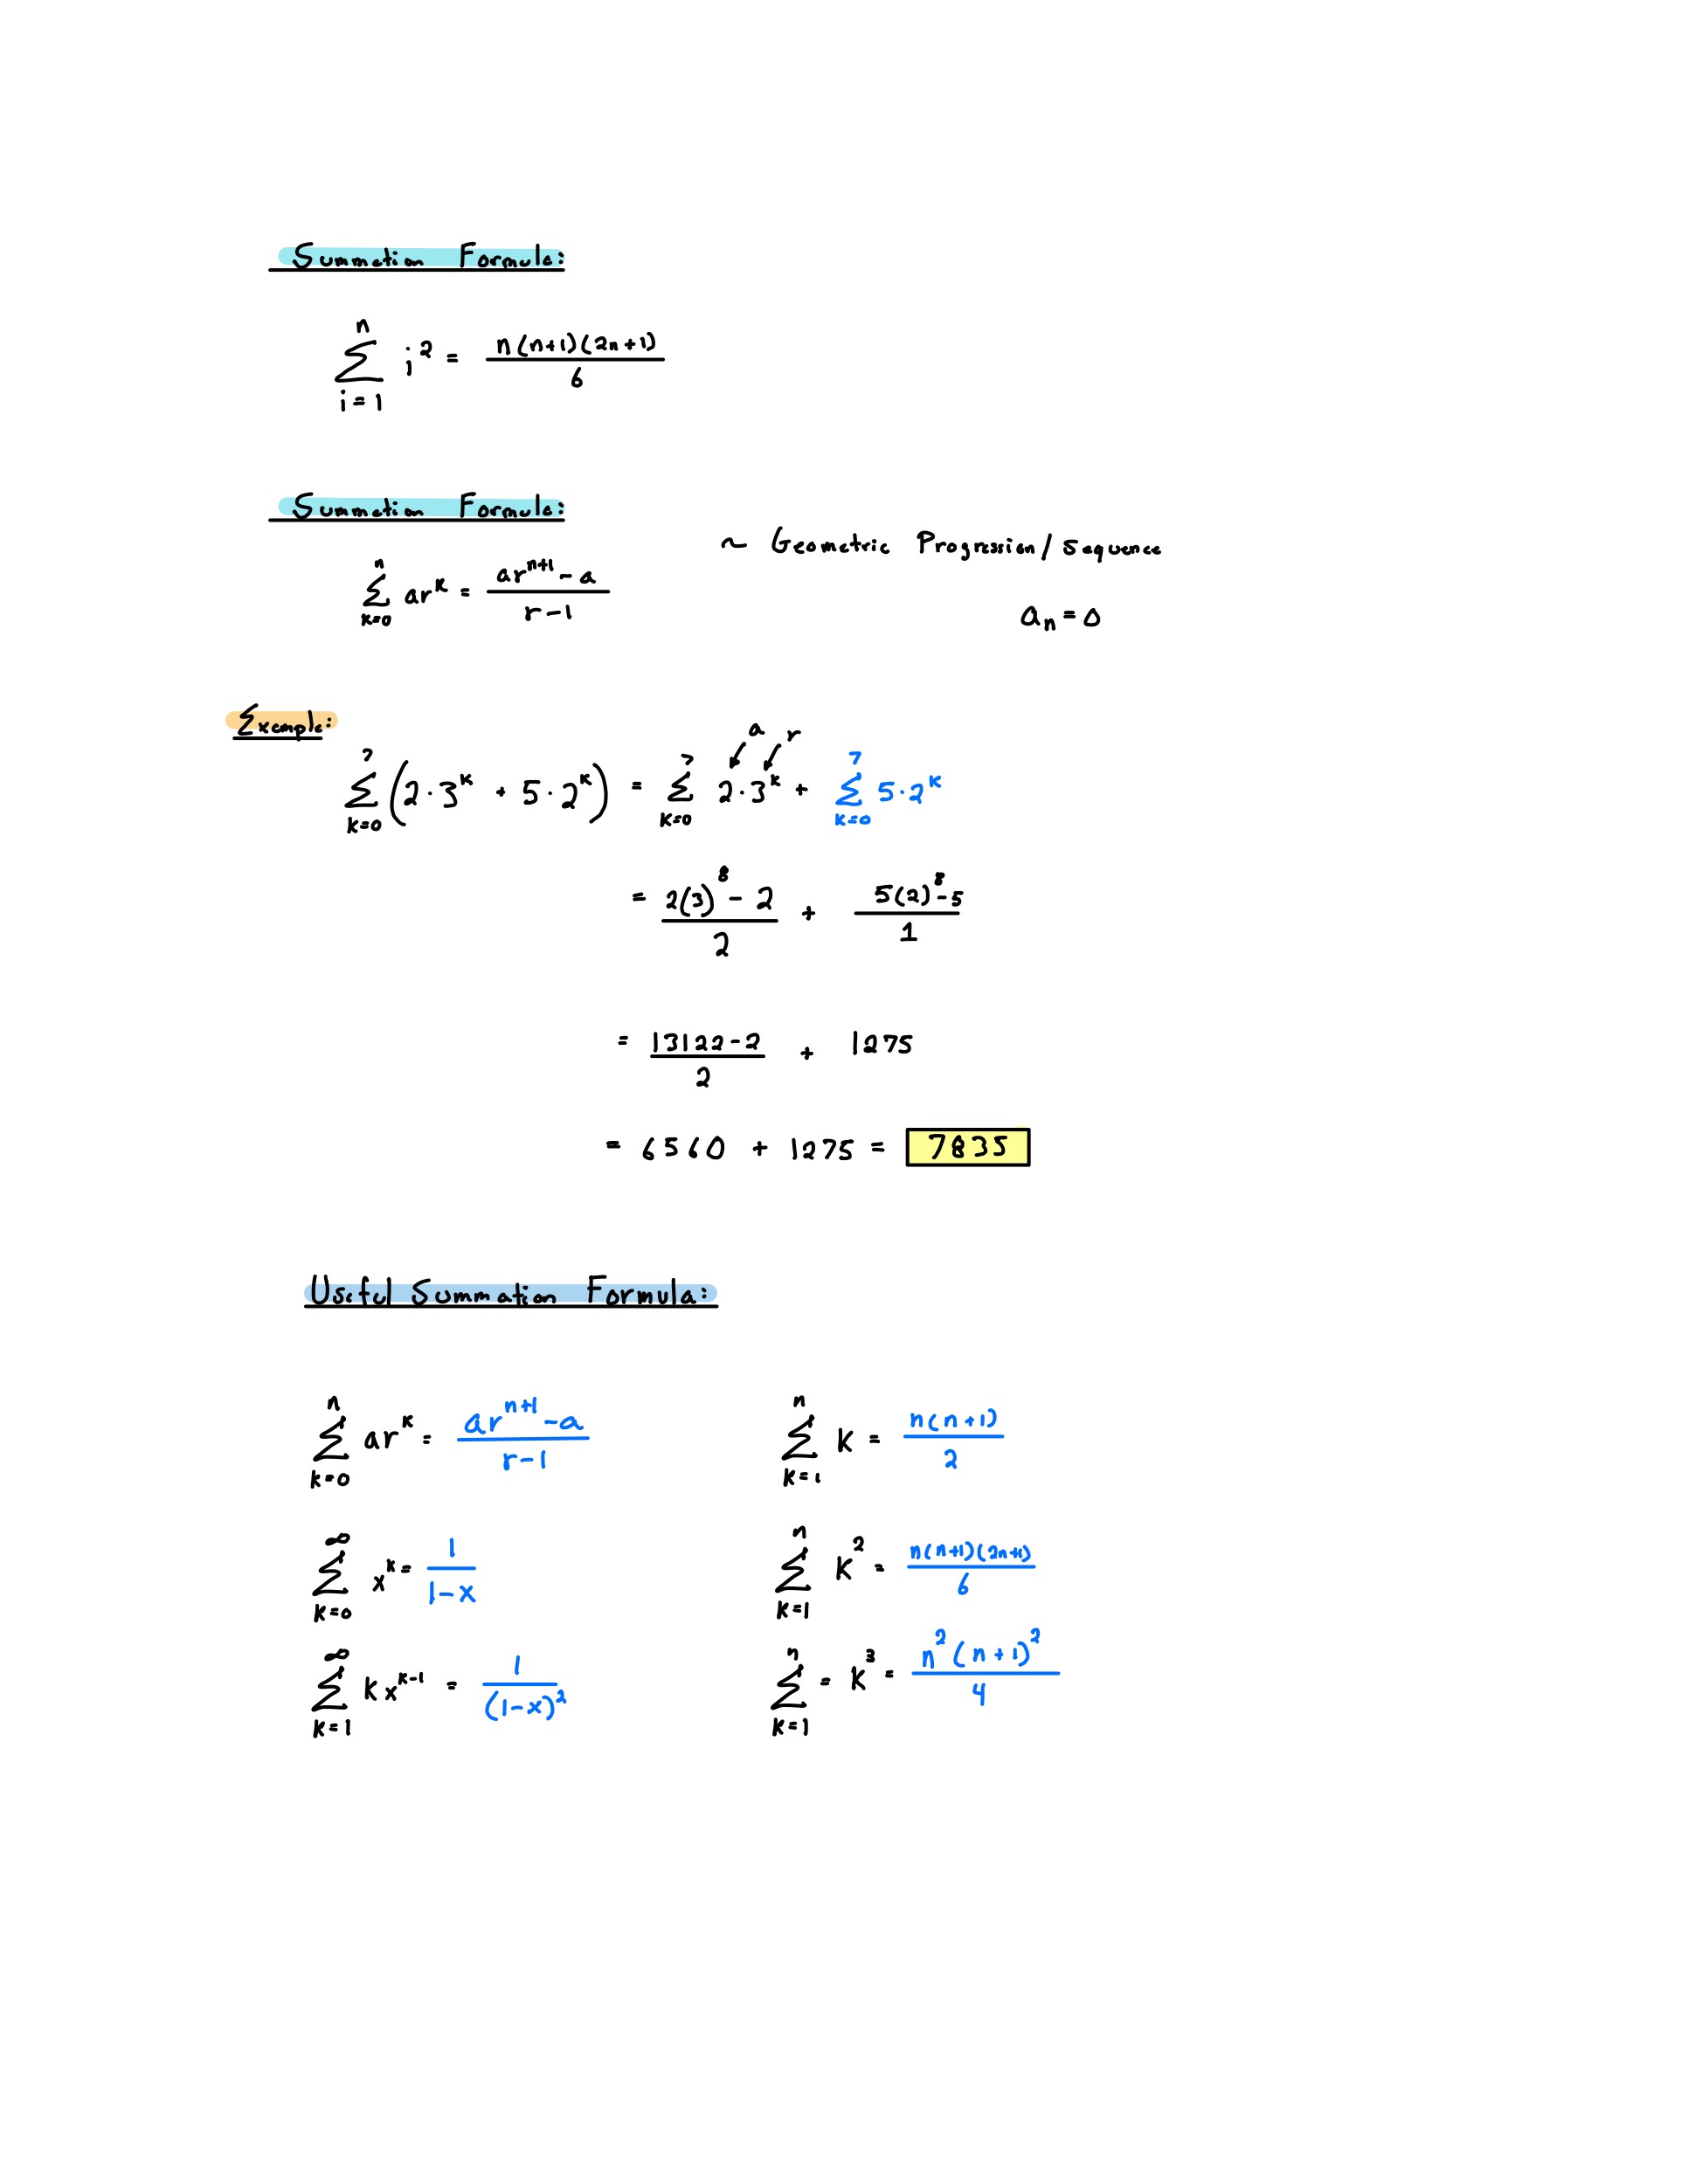 Summation Formula:
\sum_{i=1}^{n} i^2 = \frac{n(n+1)(2n+1)}{6}
Summation Formula:
~ Geometric Progression/Sequence
\sum_{k=0}^{n} ar^k = \frac{ar^{n+1} - a}{r-1}
a_n = 0
Example:
a r
\sum_{k=0}^{7} (2 \cdot 3^k + 5 \cdot 2^k) = \sum_{k=0}^{7} 2 \cdot 3^k + \sum_{k=0}^{7} 5 \cdot 2^k
= \frac{2(3)^8 - 2}{2} + \frac{5(2)^8 - 5}{1}
= \frac{13122 - 2}{2} + 1275
= 6560 + 1275 = 7835
Useful Summation Formula:
\sum_{k=0}^{n} ar^k = \frac{ar^{n+1} - a}{r-1}
\sum_{k=1}^{n} k = \frac{n(n+1)}{2}
\sum_{k=0}^{\infty} x^k = \frac{1}{1-x}
\sum_{k=1}^{n} k^2 = \frac{n(n+1)(2n+1)}{6}
\sum_{k=1}^{\infty} kx^{k-1} = \frac{1}{(1-x)^2}
\sum_{k=1}^{n} = k^3 = \frac{n^2(n+1)^2}{4}